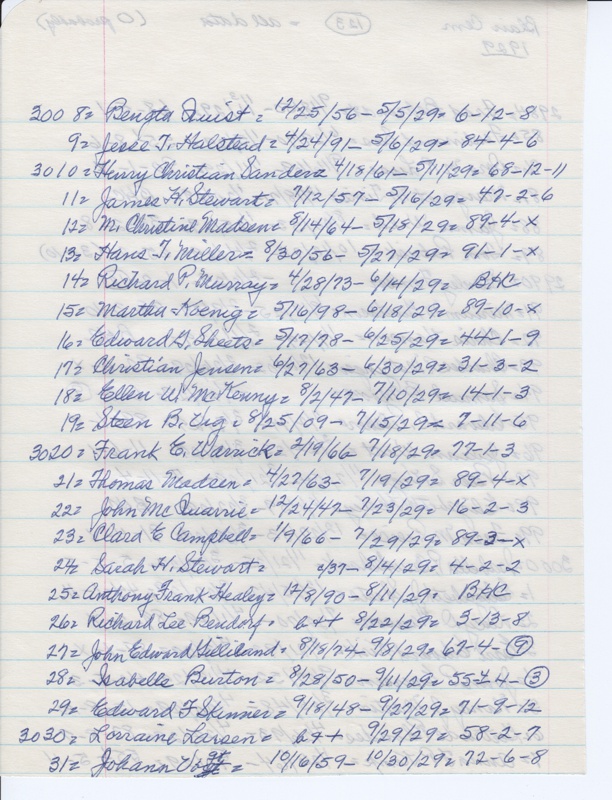 3008= Bengta Quist = 12/25/56 - 5/5/29= 6-12-8
9= Jesse T. Halstead = 4/24/91 - 5/6/29= 84-4-6
3010= Harry Christian Sander= 4/18/61 - 5/11/29= 68-12-11
11= James H. Stewart = 7/12/57 - 5/16/29= 47-2-6
12= M. Christine Madsen= 8/14/64 - 5/18/29= 89-4-x
13= Hans T. Miller= 8/30/56 - 5/27/29= 91-1-x
14= Richard P. Murray= 4/28/73 - 6/14/29= B+C
15= Martha Koenig= 5/16/98 - 6/18/29= 89-10-x
16= Edward G. Sheets= 5/17/78 - 6/25/29= 44-1-9
17= Christian Jensen= 6/27/63 - 6/30/29= 31-3-2
18= Ellen W. McKenny= 8/2/47 - 7/10/29= 14-1-3
19= Steen B. Vig= 8/25/09 - 7/15/29= 7-11-6
3020= Frank E. Warrick= 2/19/66 7/18/29= 77-1-3
21= Thomas Madsen= 4/27/63 - 7/19/29= 89-4-x
22= John McQuarrie= 12/24/47 - 7/23/29= 16-2-3
23= Clara E Campbell= 1/9/66 - 7/29/29= 89-3-x
24= Sarah H. Stewart= /37 - 8/4/29= 4-2-2
25= Anthony Frank Healey= 12/8/90 - 8/11/29= B+C
26= Richard Lee Bendorf= 8/22/29= 3-13-8
27= John Edward Gilliland= 8/18/74 - 9/8/29= 67-4-9
28= Isabelle Burton= 8/28/50 - 9/11/29= 55-4-3
29= Edward F Skinner= 9/18/48 - 9/27/29= 71-9-12
3030= Lorraine Larsen= 9/29/29= 58-2-7
31= Johann = 10/16/59 - 10/30/29= 72-6-8